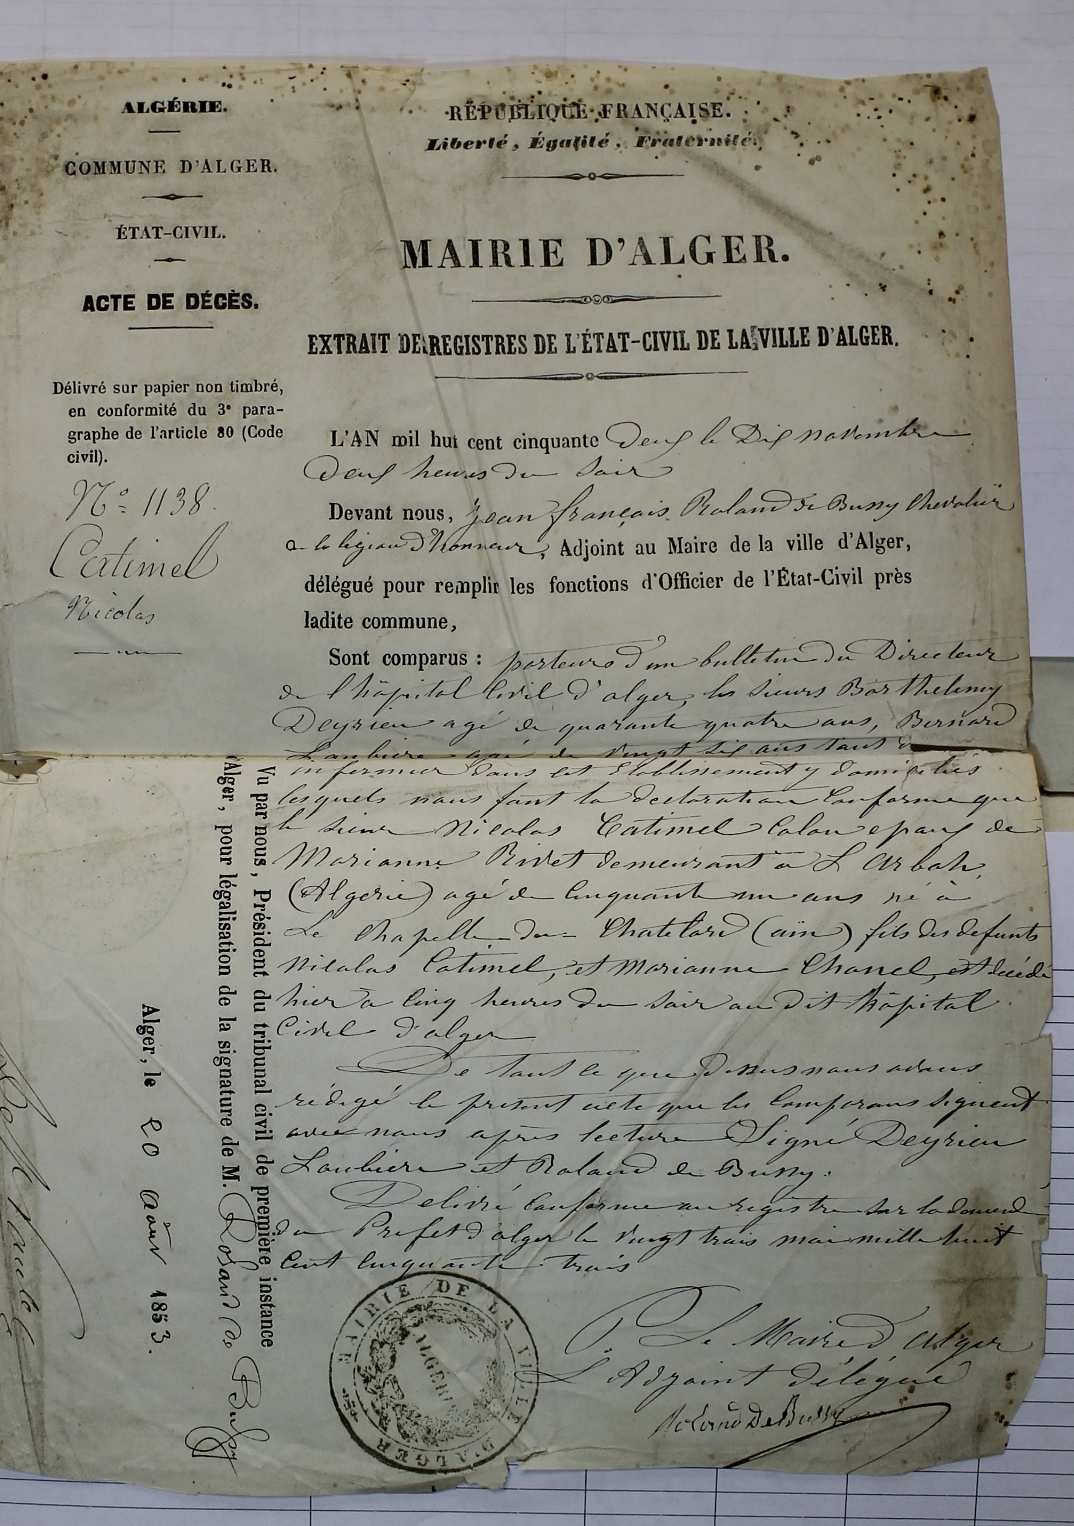 ALGÉRIE.
COMMUNE D'ALGER.
ÉTAT-CIVIL.
ACTE DE DÉCÈS.
Délivré sur papier non timbré,
en conformité du 3e para-
graphe de l'article 80 (Code
civil).
No = 1138.
Catimel
Nicolas
RÉPUBLIQUE FRANÇAISE.
Liberté, Égalité, Fraternité.
MAIRIE D'ALGER.
EXTRAIT DE REGISTRES DE L'ÉTAT-CIVIL DE LA VILLE D'ALGER.
L'AN mil huit cent cinquante Deux le Dix novembre
Deux heures du soir
Devant nous, Jean françois Roland de Bussy Chevalier
de la légion d'honneur, Adjoint au Maire de la ville d'Alger,
délégué pour remplir les fonctions d'Officier de l'État-Civil près
ladite commune,
Sont comparus : porteurs d'un bulletin du Directeur
de l'hôpital Civil d'alger, les sieurs Barthelemy
Deyrieu agé de quarante quatre ans, Bernard
Laubiere agé de vingt six ans tout
infermier dans cet Etablissement y domiciliés
lesquels nous font la declaration Conforme que
le sieur Nicolas Catimel Colon epoux de
Marianne Rivet demeurant à L'Arbah
(Algerie) agé de Cinquante un ans né à
La Chapelle du Chatelard (ain) fils des defunts
Nicolas Catimel, et Marianne Chanel, est décédé
hier à Cinq heures du soir au dit hôpital
Civil d'alger
De tout ce que dessus nous avons
rédigé le présent acte que les Comparans signent
avec nous après lecture Signé Deyrieu
Laubiere et Roland de Bussy.
Delivré Conforme au registre sur la demande
du Prefet d'alger le vingt trois mai mille huit
Cent Cinquante trois
P. Le Maire d'Alger
L'Adjoint délégué
Roland De Bussy
MAIRIE DE LA VILLE D'ALGER
ALGÉRIE
Vu par nous, Président du tribunal civil de première instance
d'Alger, pour légalisation de la signature de M. Roland de Bussy
Alger, le 20 août 1853.